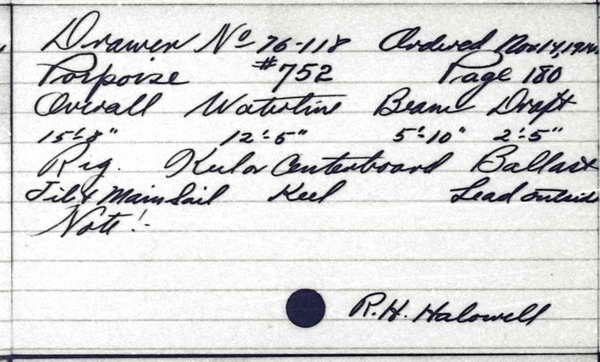 Drawer No 76-118 Ordered Nov 14, 1914
Porpoise #752 Page 180
Overall Waterline Beam Draft
15'-8" 12'-5" 5'-10" 2'-5"
Rig. Keel or Centerboard Ballast
Jib & Main Sail Keel Lead outside
Note!-
R.H. Halowell